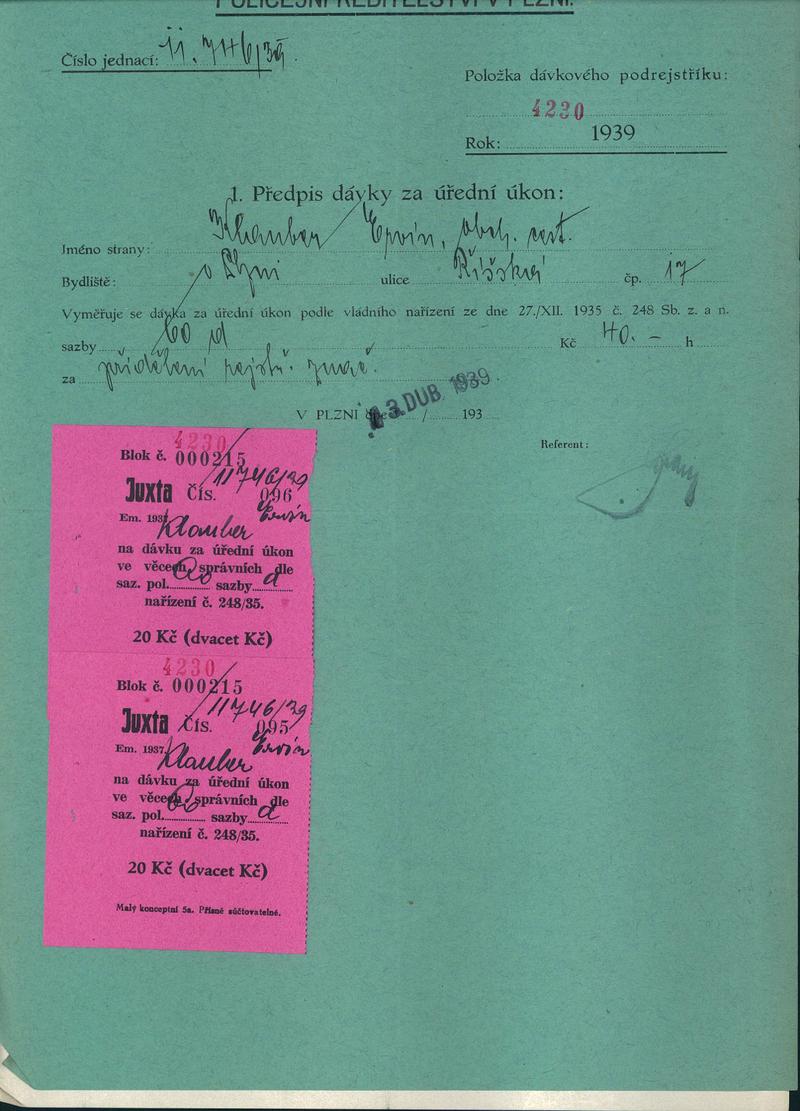 POLICEJNÍ ŘEDITELSTVÍ V PLZNI.
Číslo jednací: 11.746/39.
Položka dávkového podrejstříku:
4230
Rok: 1939
1. Předpis dávky za úřední úkon:
Jméno strany: Klauber Ervín, obch. cest.
Bydliště: v Plzni ulice Říšská čp. 17
Vyměřuje se dávka za úřední úkon podle vládního nařízení ze dne 27./XII. 1935 č. 248 Sb. z. a n.
sazby 60 d Kč 40.- h
za přidělení rejstř. znač.
V PLZNI dne 3. DUB. 1939 / 193
Referent:
4230
Blok č. 000215
11746/39
Juxta Čís. 096
Em. 1937 Klauber Ervín
na dávku za úřední úkon
ve věcech správních dle
saz. pol. 60 sazby d
nařízení č. 248/35.
20 Kč (dvacet Kč)
4230
Blok č. 000215
11746/39
Juxta Čís. 095
Em. 1937. Klauber Ervín
na dávku za úřední úkon
ve věcech správních dle
saz. pol. 60 sazby d
nařízení č. 248/35.
20 Kč (dvacet Kč)
Malý konceptní 5a. Přísně súčtovatelné.